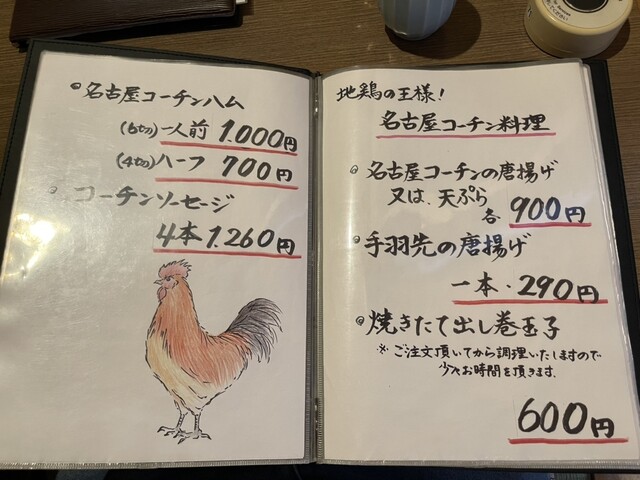 名古屋コーチンハム
(6切)一人前 1.000円
(4切)ハーフ 700円
コーチンソーセージ
4本1.260円
地鶏の王様!
名古屋コーチン料理
名古屋コーチンの唐揚げ
又は、天ぷら
各 900円
手羽先の唐揚げ
一本・290円
焼きたて出し巻玉子
※ご注文頂いてから調理いたしますので
少々お時間を頂きます.
600円